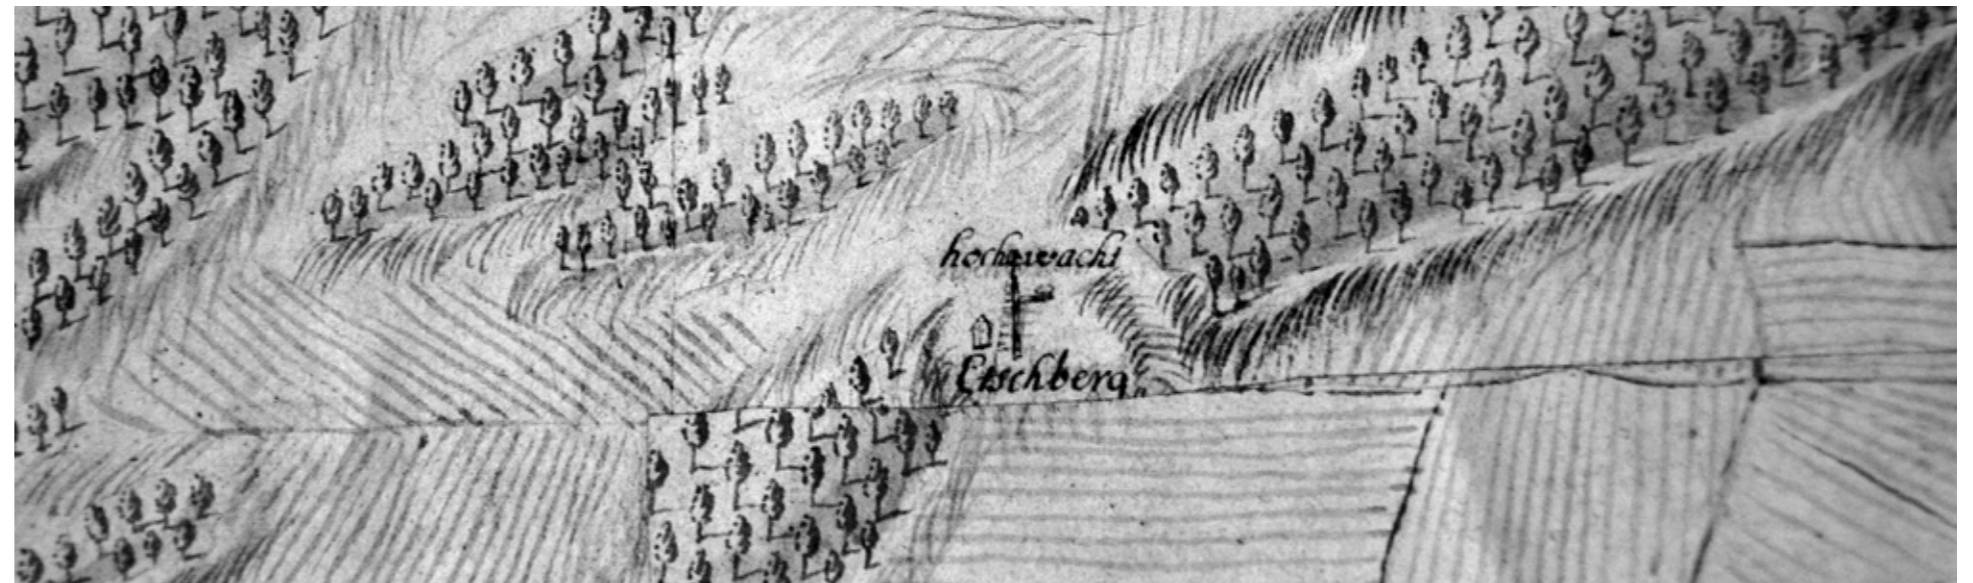 hochwacht
Etschberg